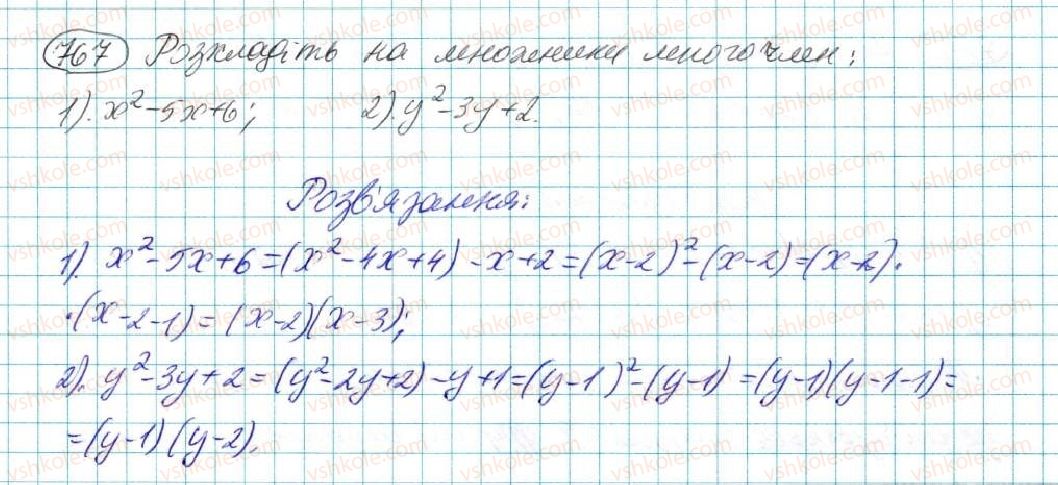 767 Розкладіть на множники многочлен:
1). x²-5x+6; 2). y²-3y+2.
Розв'язання:
1). x²-5x+6=(x²-4x+4)-x+2=(x-2)²-(x-2)=(x-2)·
·(x-2-1)=(x-2)(x-3);
2). y²-3y+2=(y²-2y+2)-y+1=(y-1)²-(y-1)=(y-1)(y-1-1)=
=(y-1)(y-2).